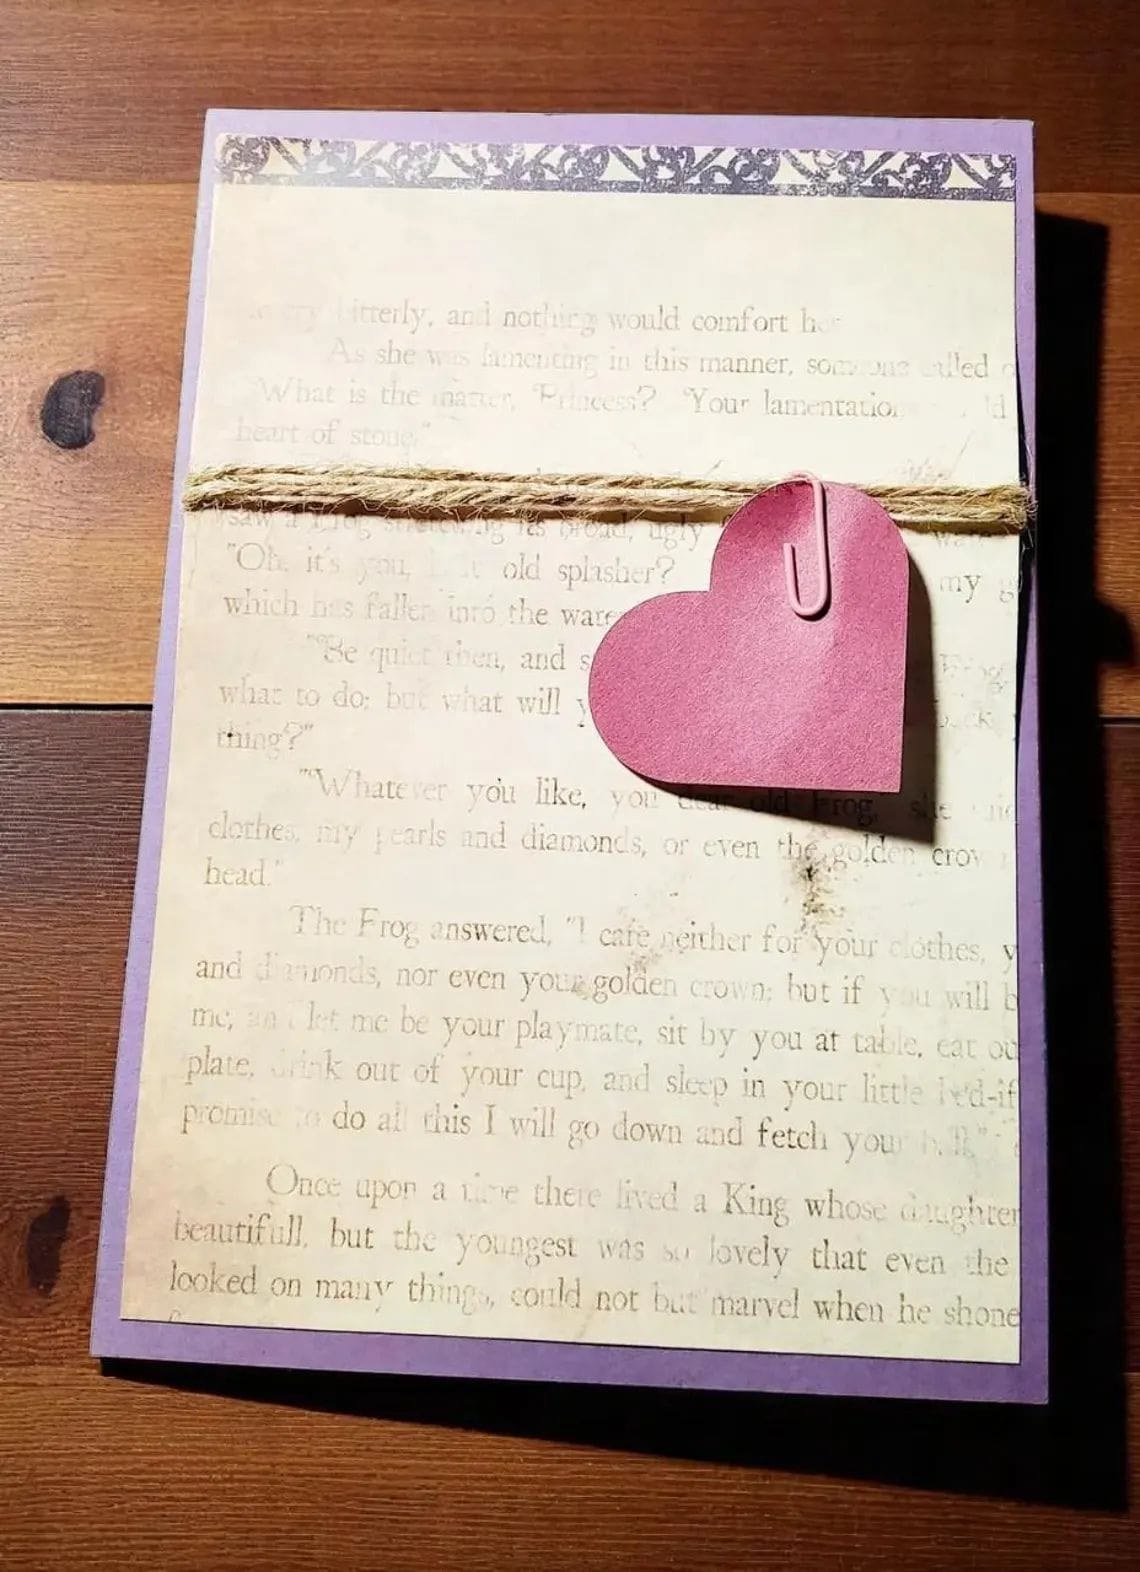 cry bitterly, and nothing would comfort her
As she was lamenting in this manner, someone called
"What is the matter, Princess? Your lamentation
heart of stone."
saw a Frog stretching its broad, ugly
"Oh, it's you, old splasher? my g
which has fallen into the wate
"Be quiet then, and s Frog,
what to do; but what will y back
thing?"
"Whatever you like, you dear old Frog," she
clothes, my pearls and diamonds, or even the golden crown
head."
The Frog answered, "I care neither for your clothes, y
and diamonds, nor even your golden crown; but if you will b
me, and let me be your playmate, sit by you at table, eat ou
plate, drink out of your cup, and sleep in your little bed-if
promise to do all this I will go down and fetch your ball."
Once upon a time there lived a King whose daughter
beautifull, but the youngest was so lovely that even the
looked on many things, could not but marvel when he shone